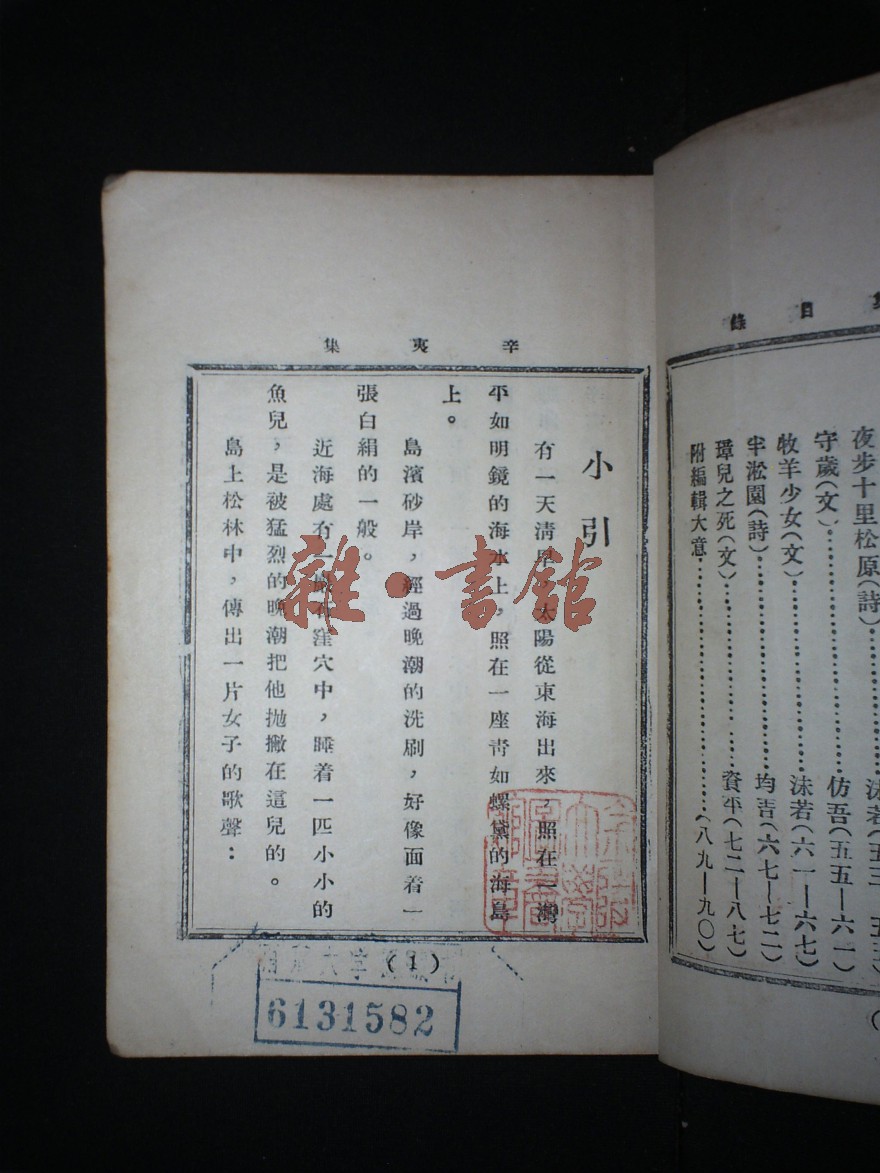 集目錄
夜步十里松原(詩)
守歲(文)……仿吾(五五—六一)
牧羊少女(文)……沫若(六一—六七)
半淞園(詩)……均吾(六七—七二)
璋兒之死(文)……資平(七二—八七)
附編輯大意……(八九—九〇)
辛夷集
小引
有一天清晨,太陽從東海出來,照在一灣
平如明鏡的海水上,照在一座靑如螺黛的海島
上。
島濱砂岸,經過晚潮的洗刷,好像面着一
張白絹的一般。
近海處有一石窪穴中,睡着一匹小小的
魚兒,是被猛烈的晚潮把他抛撇在這兒的。
島上松林中,傳出一片女子的歌聲:
(1)
6131582
雜·書館